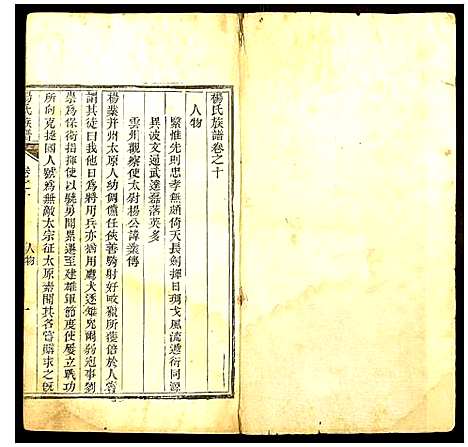 楊氏族譜卷之十
人物
繄惟先則忠孝無頗倚天長劍揮日珮戈風流遞衍同源
異波文通武達磊落英多
雲州觀察使太尉楊公諱業傳
楊業并州太原人幼倜儻任俠善騎射好畋獵所獲倍於人嘗
謂其徒曰我他日為將用兵亦猶用鷹犬逐雉兔爾弱冠事劉
崇為保衛指揮使以驍勇聞累遷至建雄軍節度使屢立戰功
所向克捷國人號為無敵太宗征太原素聞其名嘗購求之既
楊氏族譜 卷之十 人物 一